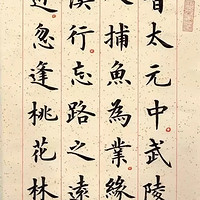 太元中武陵
捕魚為業緣
溪行忘路之遠
近忽逢桃花林